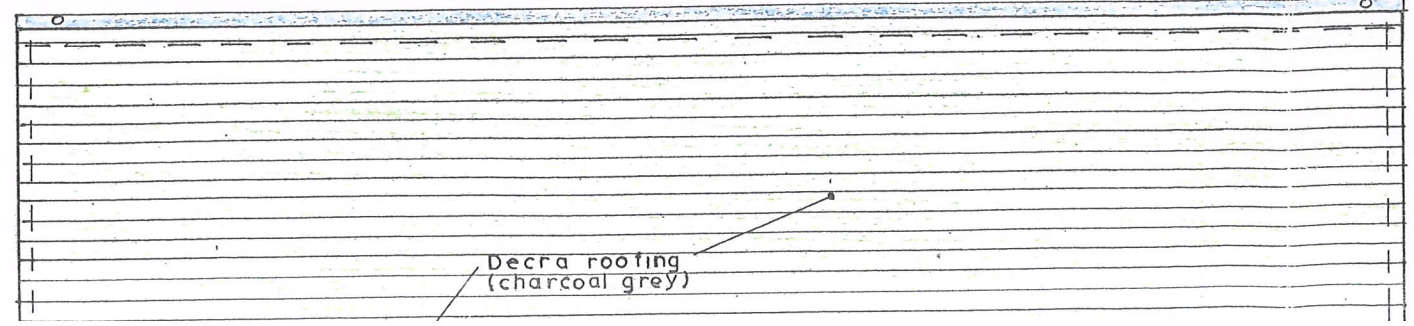 Decra roofing
(charcoal grey)